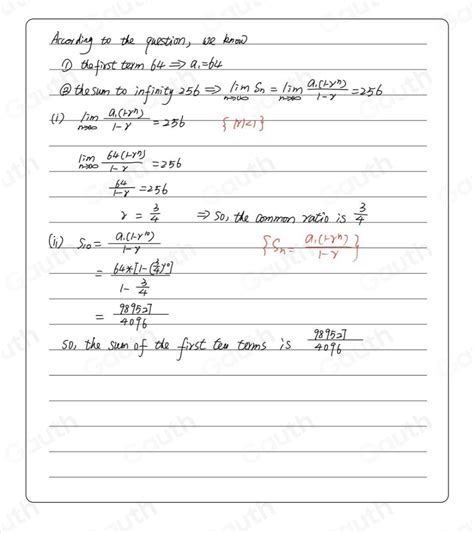 According to the question, we know
① the first term 64 ⇒ a₁=64
② the sum to infinity 256 ⇒ lim n→∞ Sn = lim n→∞ a₁(1-rⁿ)/(1-r) = 256
(i) lim n→∞ a₁(1-rⁿ)/(1-r) = 256 {|r|<1}
lim n→∞ 64(1-rⁿ)/(1-r) = 256
64/(1-r) = 256
r = 3/4 ⇒ so, the common ratio is 3/4
(ii) S₁₀ = a₁(1-r¹⁰)/(1-r) {Sn = a₁(1-rⁿ)/(1-r)}
= 64*[1-(3/4)¹⁰]/(1-3/4)
= 989527/4096
so, the sum of the first ten terms is 989527/4096
Gauth